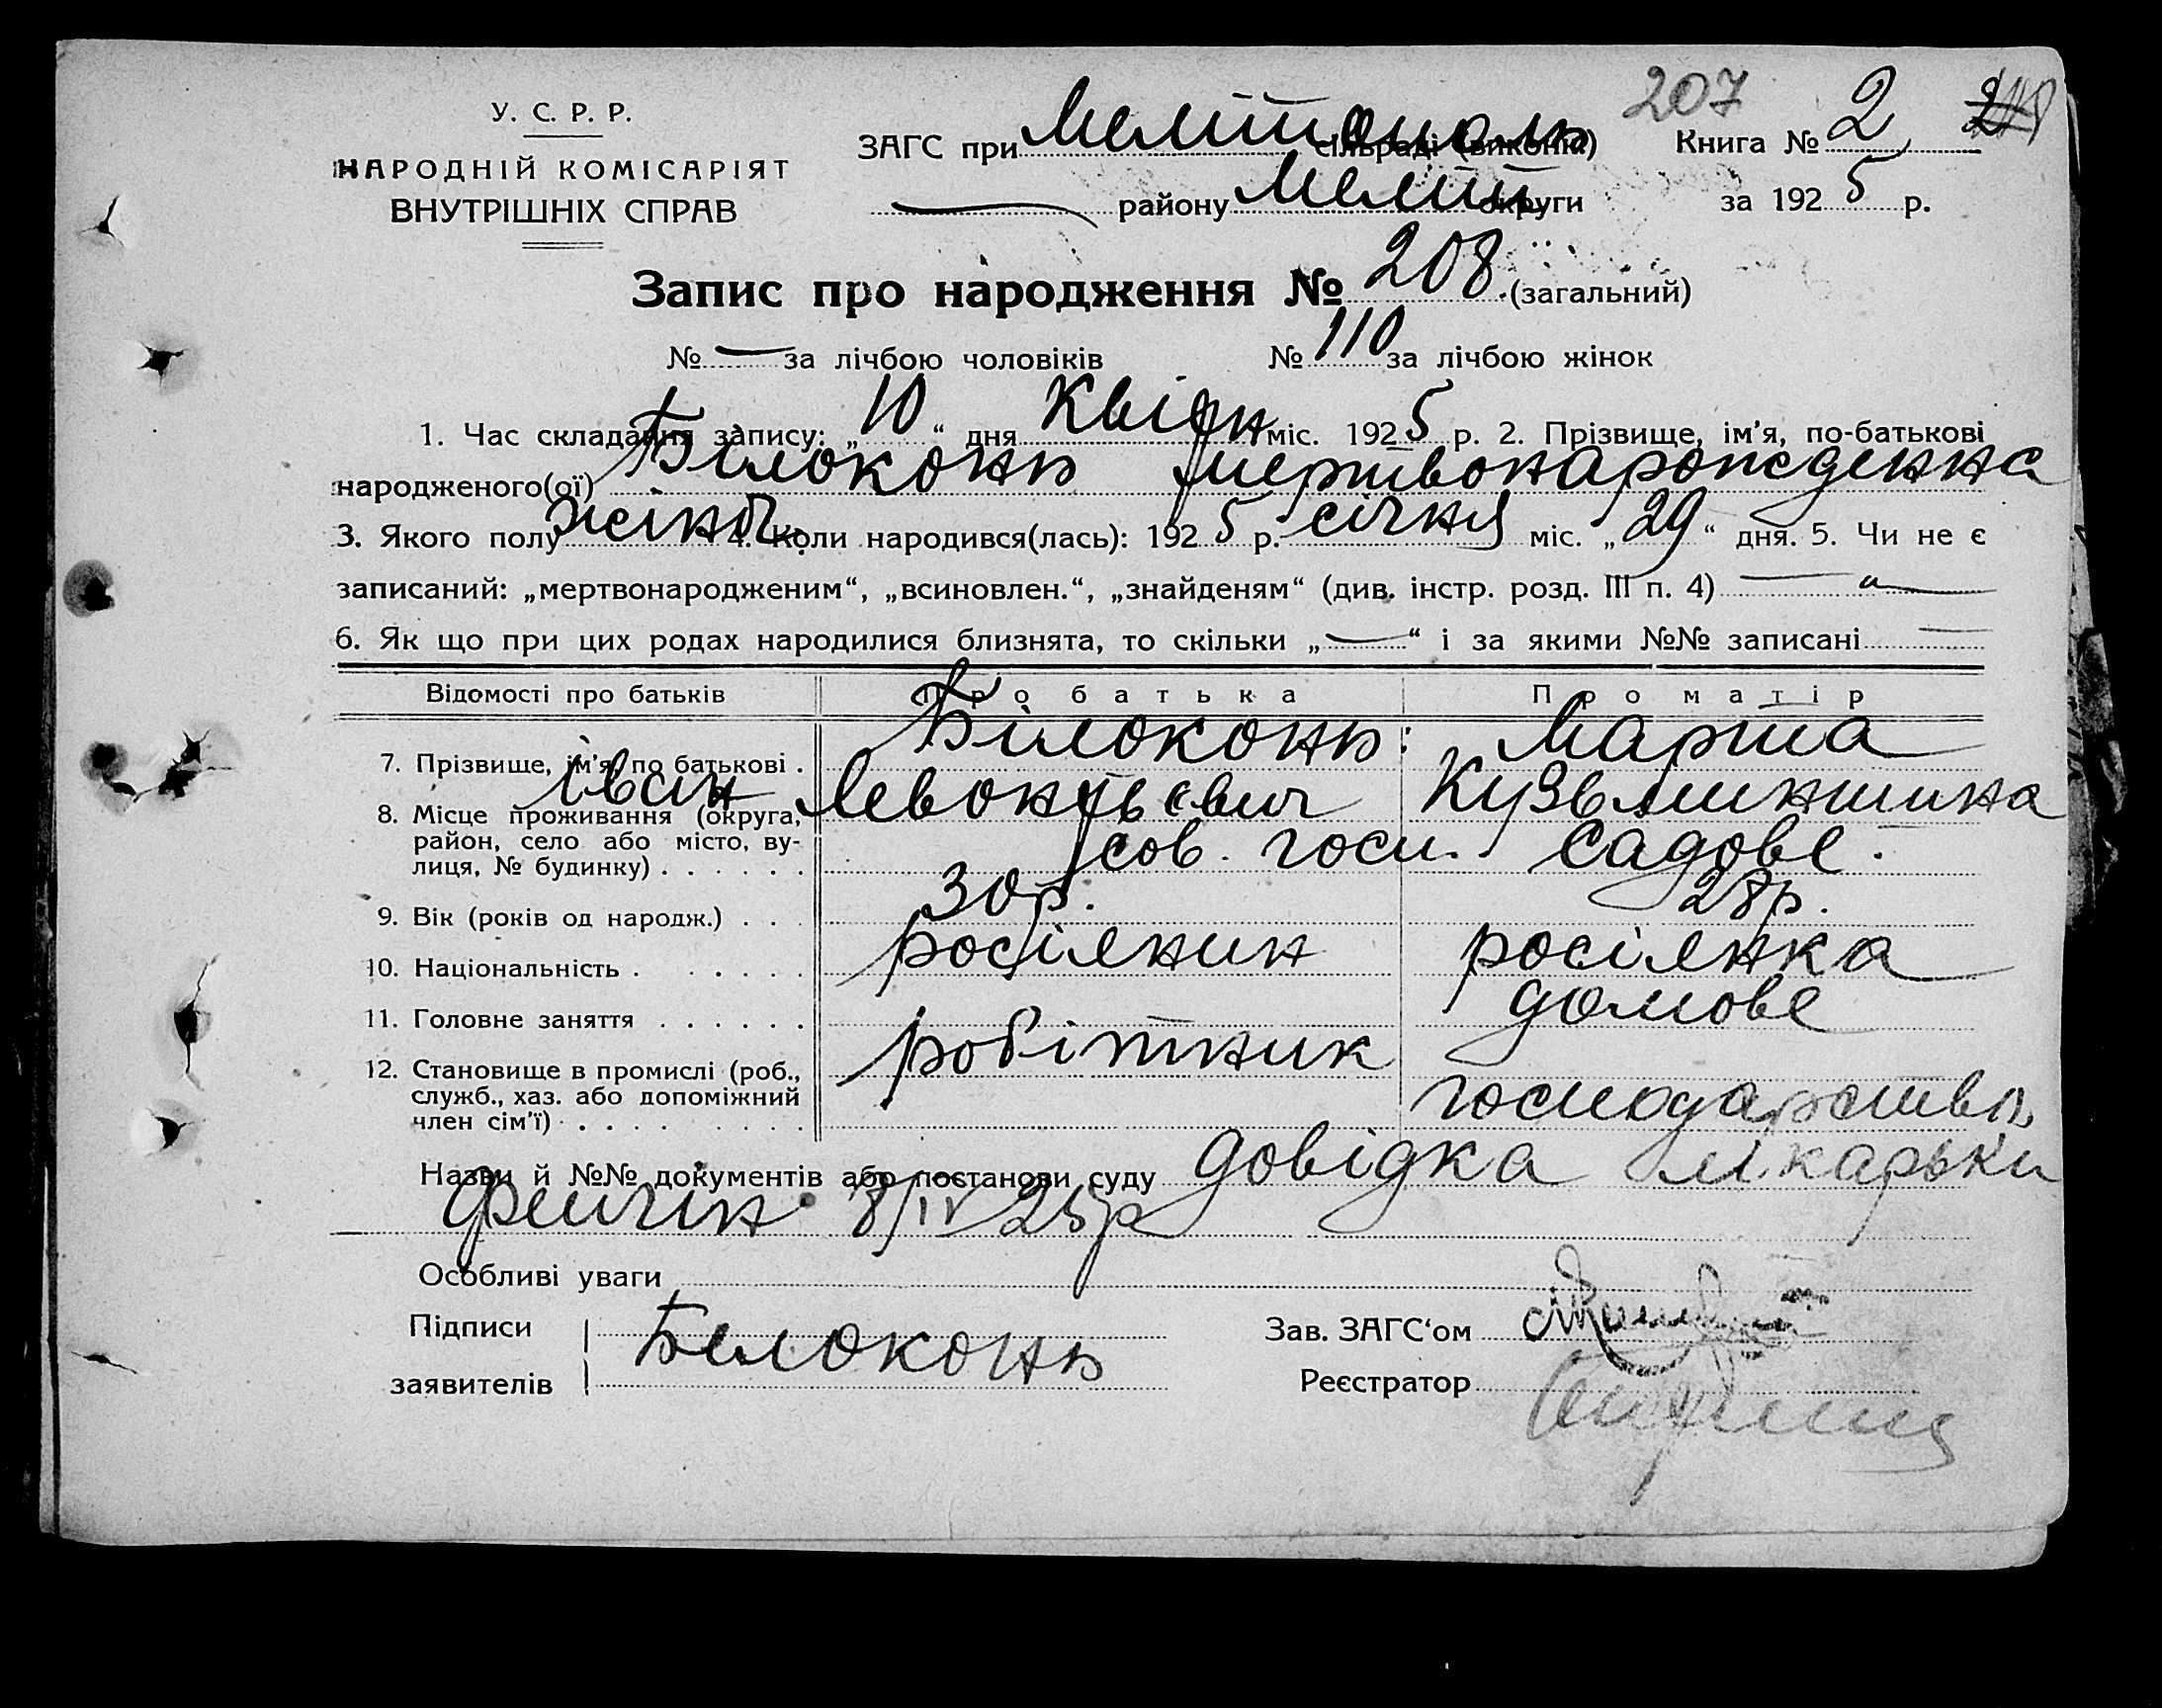 207
У. С. Р. Р.
НАРОДНІЙ КОМІСАРІЯТ
ВНУТРІШНІХ СПРАВ
ЗАГС при Мелітополь сільраді (виконкі) Книга № 2
— району Меліт округи за 1925 р.
Запис про народження № 208 (загальний)
№ — за лічбою чоловіків № 110 за лічбою жінок
1. Час складання запису: „10“ дня Квітн міс. 1925 р. 2. Прізвище, ім’я, по-батькові
народженого(ої) Білоконь мертвонарожденна
3. Якого полу жіноч. 4. Коли народився(лась): 1925 р. січня міс. „29“ дня. 5. Чи не є
записаний: „мертвонародженим“, „всиновлен.“, „знайденям“ (див. інстр. розд. III п. 4) — „ —
6. Як що при цих родах народилися близнята, то скільки „—“ і за якими №№ записані —
Відомості про батьків Про батька Про матір
7. Прізвище, ім’я, по батькові . Білоконь Марта
Іван Левонтьевич Кузьминишна
8. Місце проживання (округа,
район, село або місто, ву-
лиця, № будинку) . . . . . . сов. госп. Садове.
9. Вік (років од народж.) . . . 30р. 28р.
10. Національність . . . . . . росіянин росіянка
11. Головне заняття . . . . . . робітник домове
12. Становище в промислі (роб.,
служб., хаз. або допоміжний
член сім’ї) . . . . . . . . господарство
Назви й №№ документів або постанови суду довідка лікарьки
8/IV 25р
Особливі уваги
Підписи
заявителів Белоконь
Зав. ЗАГС‘ом
Реєстратор